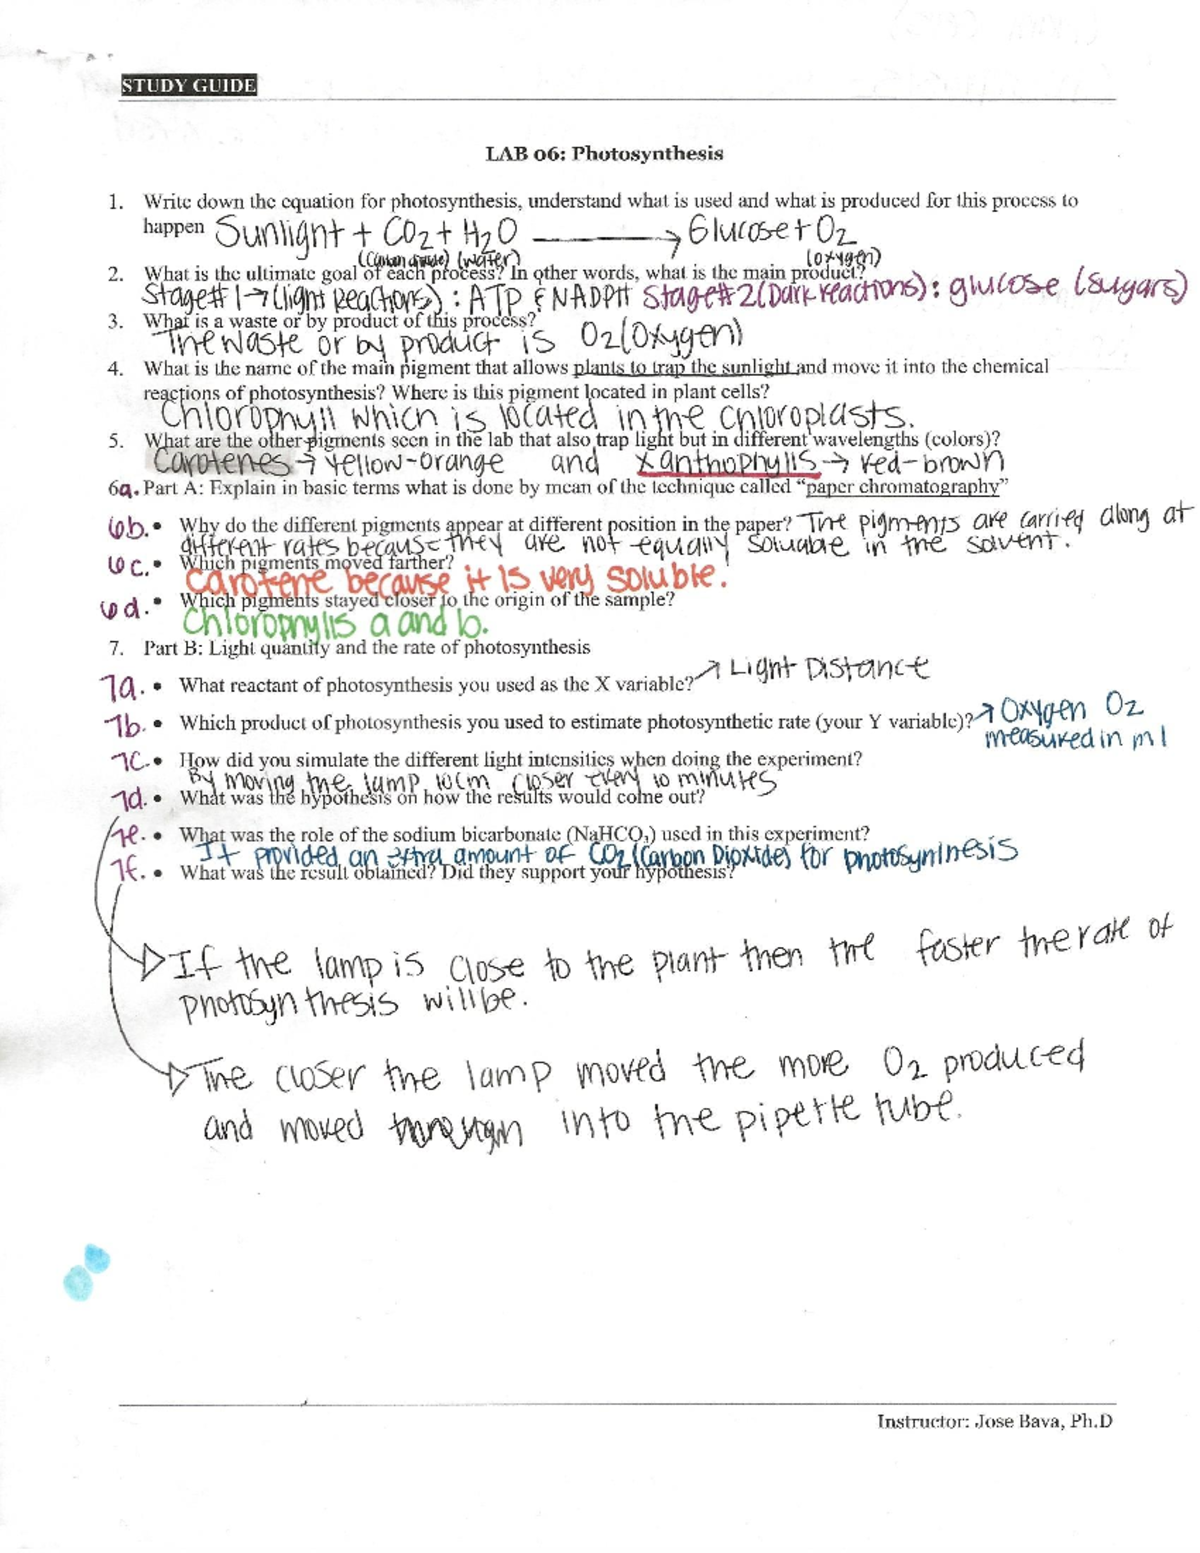 STUDY GUIDE
LAB 06: Photosynthesis
1. Write down the equation for photosynthesis, understand what is used and what is produced for this process to
happen Sunlight + CO2 + H2O → Glucose + O2
(carbon dioxide) (water) (oxygen)
2. What is the ultimate goal of each process? In other words, what is the main product?
Stage #1 → (Light Reactions) : ATP & NADPH Stage #2 (Dark reactions) : glucose (sugars)
3. What is a waste or by product of this process?
The waste or by product is O2 (Oxygen)
4. What is the name of the main pigment that allows plants to trap the sunlight and move it into the chemical
reactions of photosynthesis? Where is this pigment located in plant cells?
Chlorophyll which is located in the chloroplasts.
5. What are the other pigments seen in the lab that also trap light but in different wavelengths (colors)?
Carotenes → Yellow-orange and Xanthophylls → red-brown
6a. Part A: Explain in basic terms what is done by mean of the technique called "paper chromatography"
6b. • Why do the different pigments appear at different position in the paper? The pigments are carried along at
different rates because they are not equally soluable in the solvent.
6c. • Which pigments moved farther?
Carotene because it is very soluble.
6d. • Which pigments stayed closer to the origin of the sample?
Chlorophylls a and b.
7. Part B: Light quantity and the rate of photosynthesis
7a. • What reactant of photosynthesis you used as the X variable? → Light Distance
7b. • Which product of photosynthesis you used to estimate photosynthetic rate (your Y variable)? → Oxygen O2
measured in ml
7c. • How did you simulate the different light intensities when doing the experiment?
By moving the lamp 10cm closer every 10 minutes
7d. • What was the hypothesis on how the results would come out?
7e. • What was the role of the sodium bicarbonate (NaHCO3) used in this experiment?
It provided an extra amount of CO2 (Carbon Dioxide) for photosynthesis
7f. • What was the result obtained? Did they support your hypothesis?
If the lamp is close to the plant then the faster the rate of
photosynthesis will be.
The closer the lamp moved the more O2 produced
and moved through into the pipette tube.
Instructor: Jose Bava, Ph.D